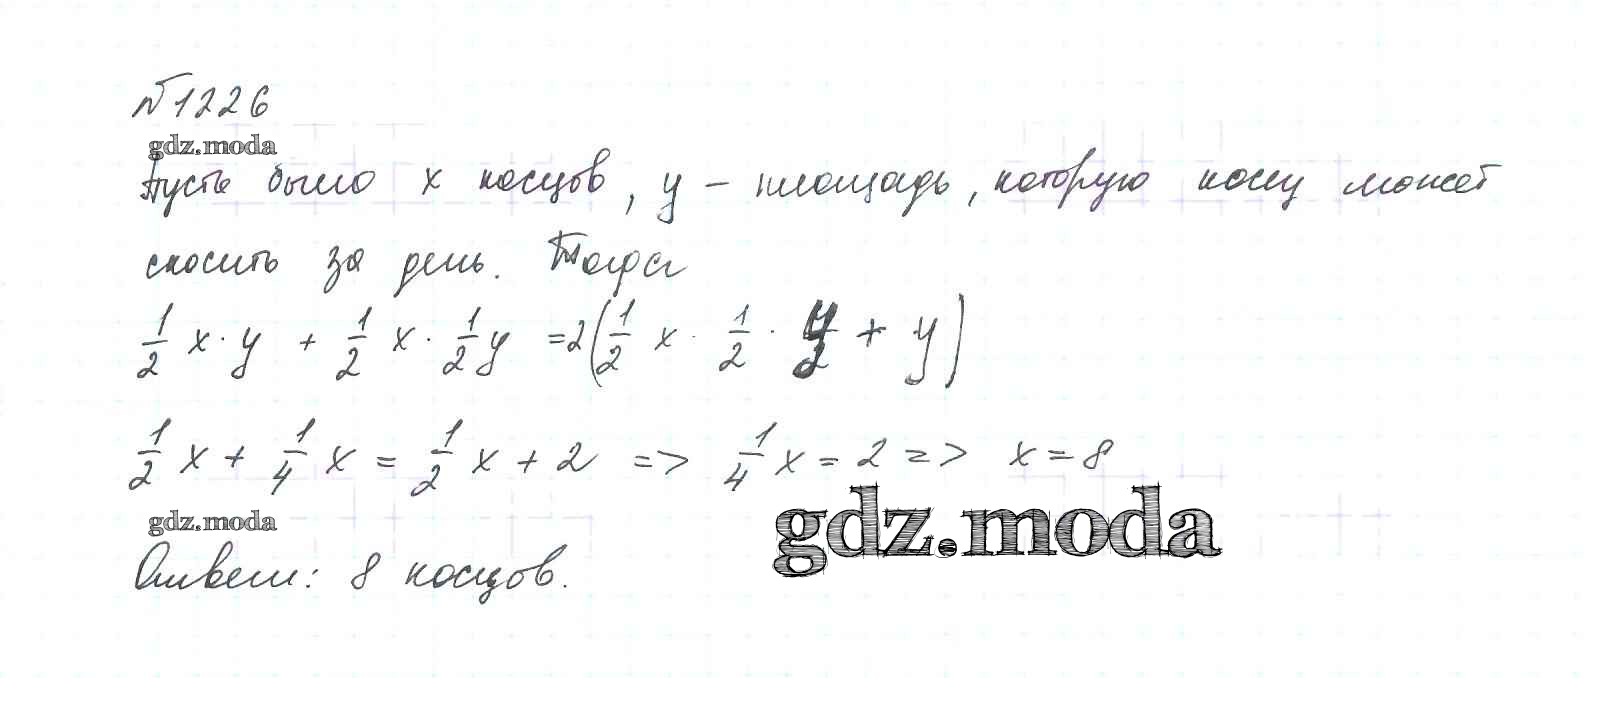 №1226
gdz.moda
Пусть было x косцов, y – площадь, которую косец может
скосить за день. Тогда
1/2 x · y + 1/2 x · 1/2 y = 2(1/2 x · 1/2 · y/2 + y)
1/2 x + 1/4 x = 1/2 x + 2 => 1/4 x = 2 => x = 8
gdz.moda
gdz.moda
Ответ: 8 косцов.